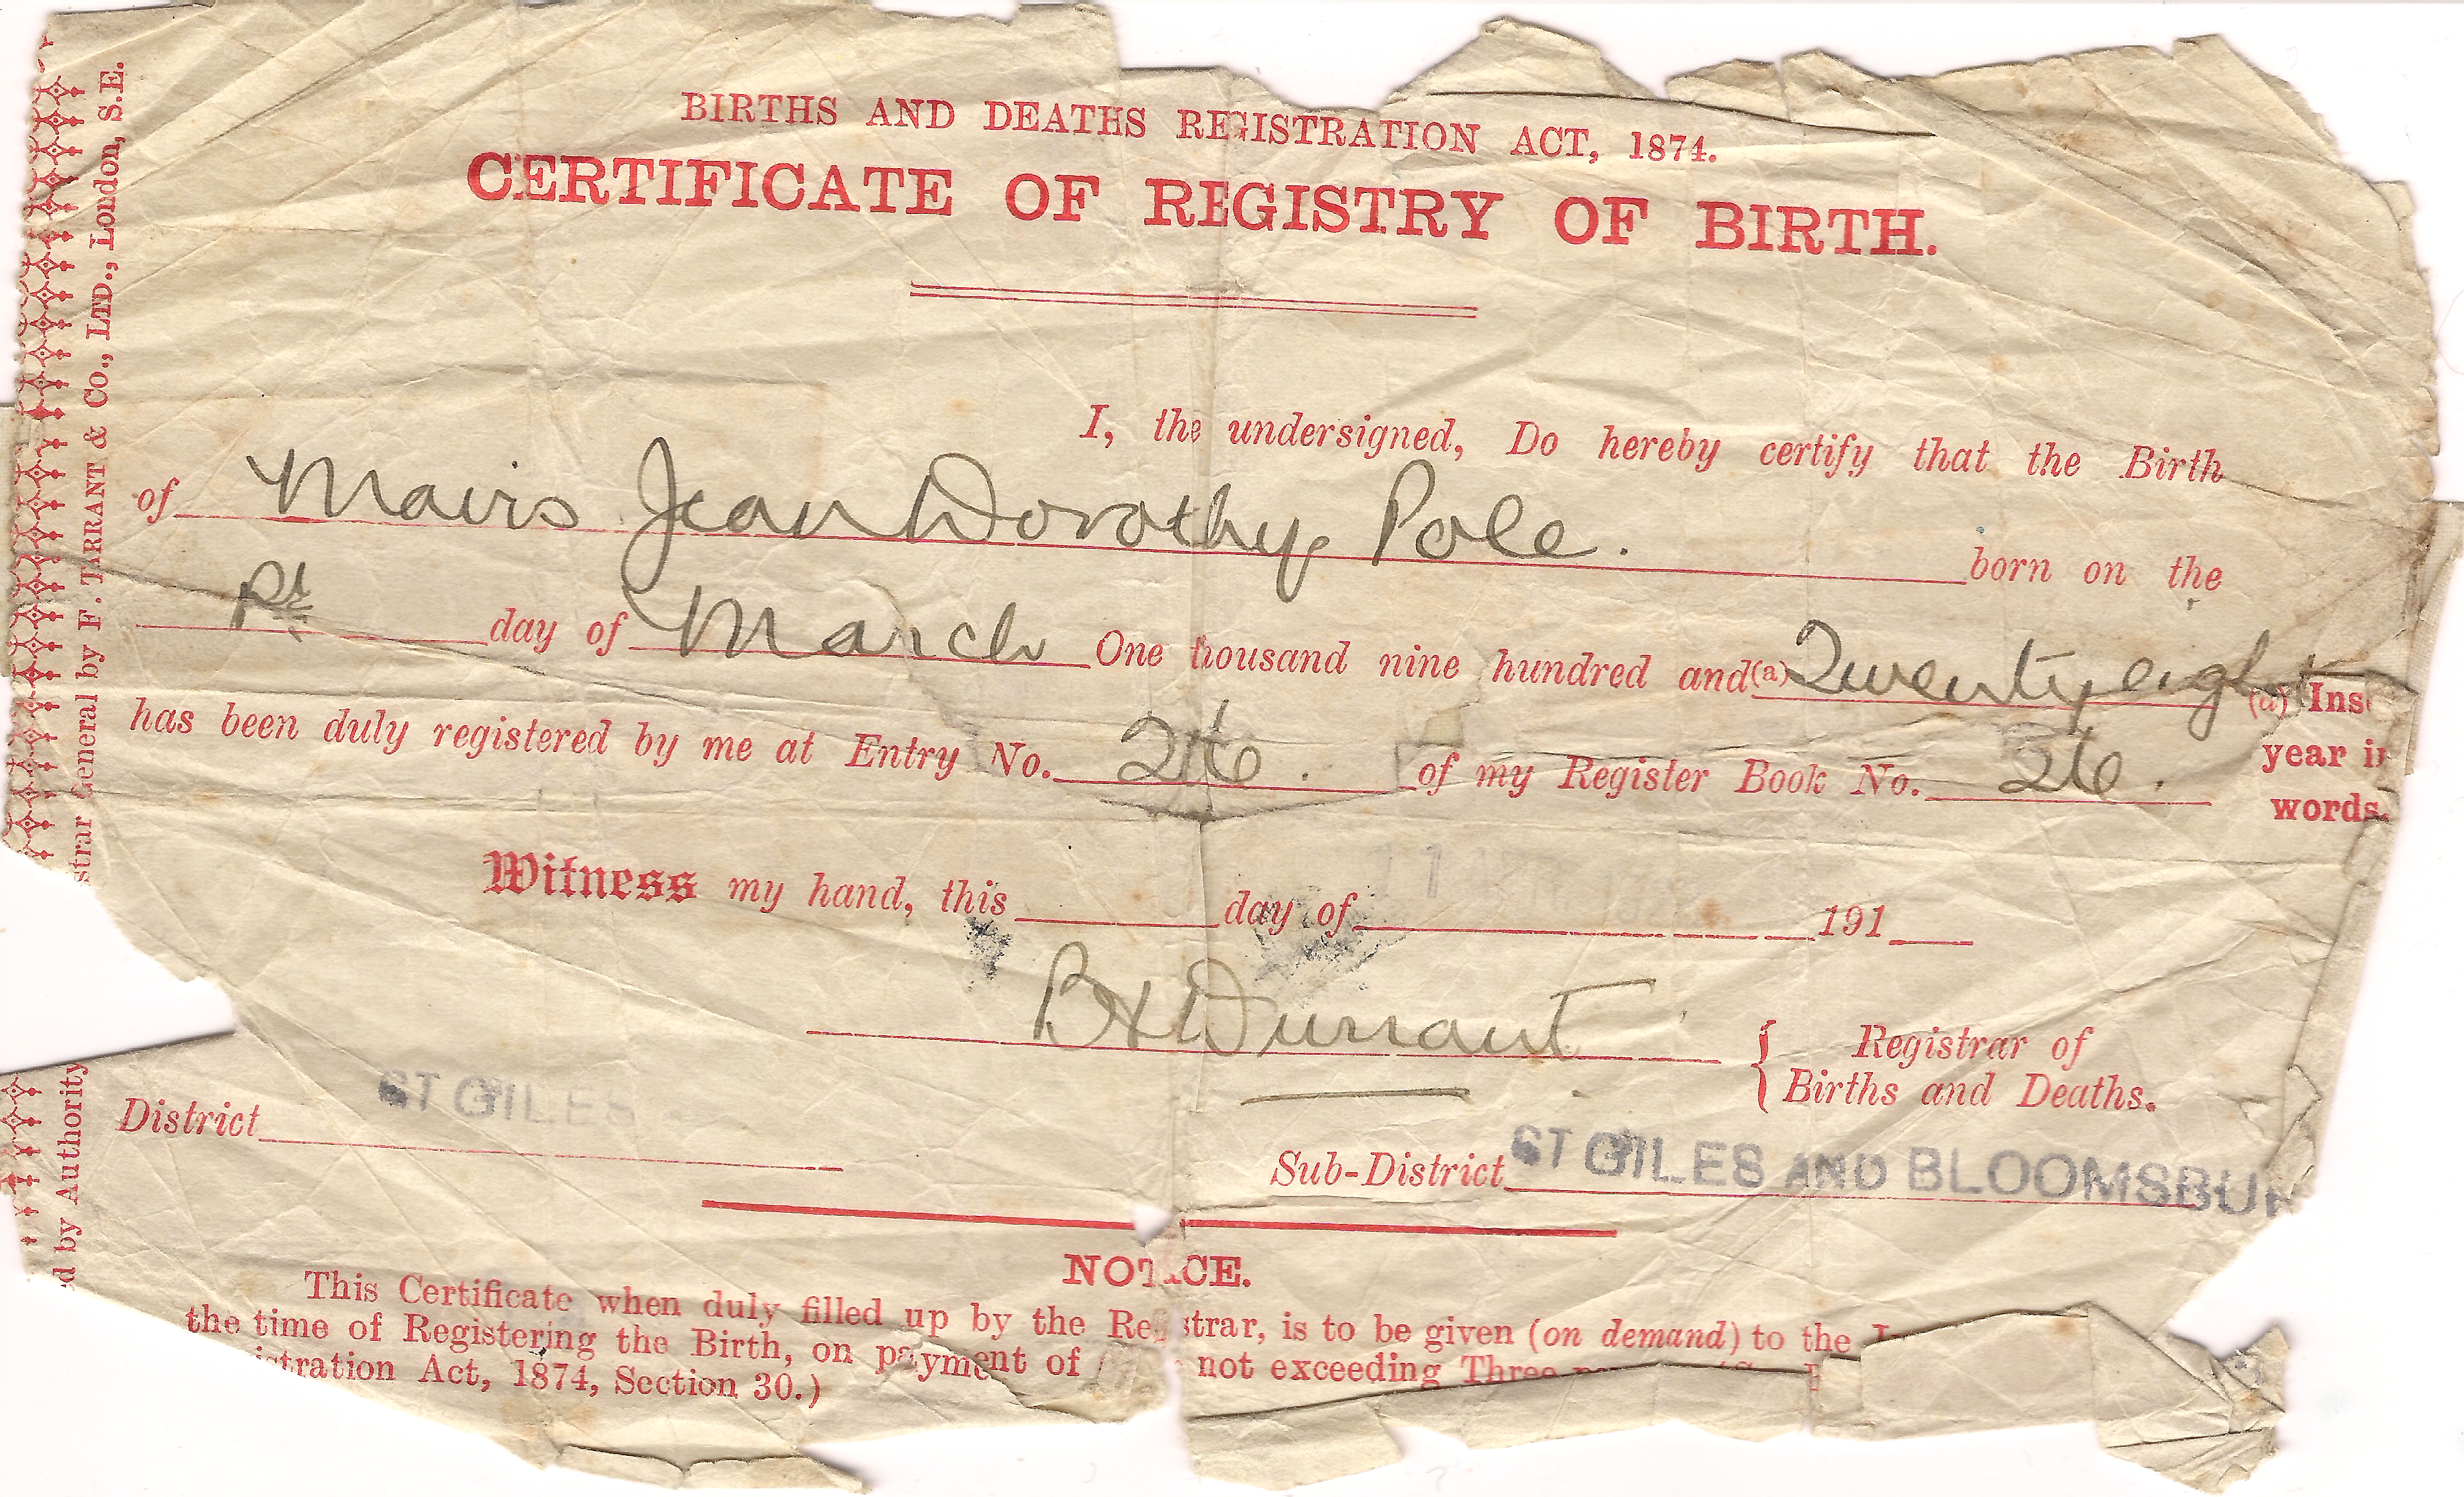 BIRTHS AND DEATHS REGISTRATION ACT, 1874.
CERTIFICATE OF REGISTRY OF BIRTH.
I, the undersigned, Do hereby certify that the Birth
of Mavis Jean Dorothy Pole. born on the
day of March One thousand nine hundred and (a) Twenty eight
(a) Inse
has been duly registered by me at Entry No. of my Register Book No. 26.
year in
words.
Witness my hand, this day of 191
B H Durrant
Registrar of
Births and Deaths.
District ST GILES
Sub-District ST GILES AND BLOOMSBUR
NOTICE.
This Certificate when duly filled up by the Re strar, is to be given (on demand) to the
the time of Registering the Birth, on payment of not exceeding Three
istration Act, 1874, Section 30.)
d by Authority
strar General by F. TARRANT & Co., LTD., London, S.E.